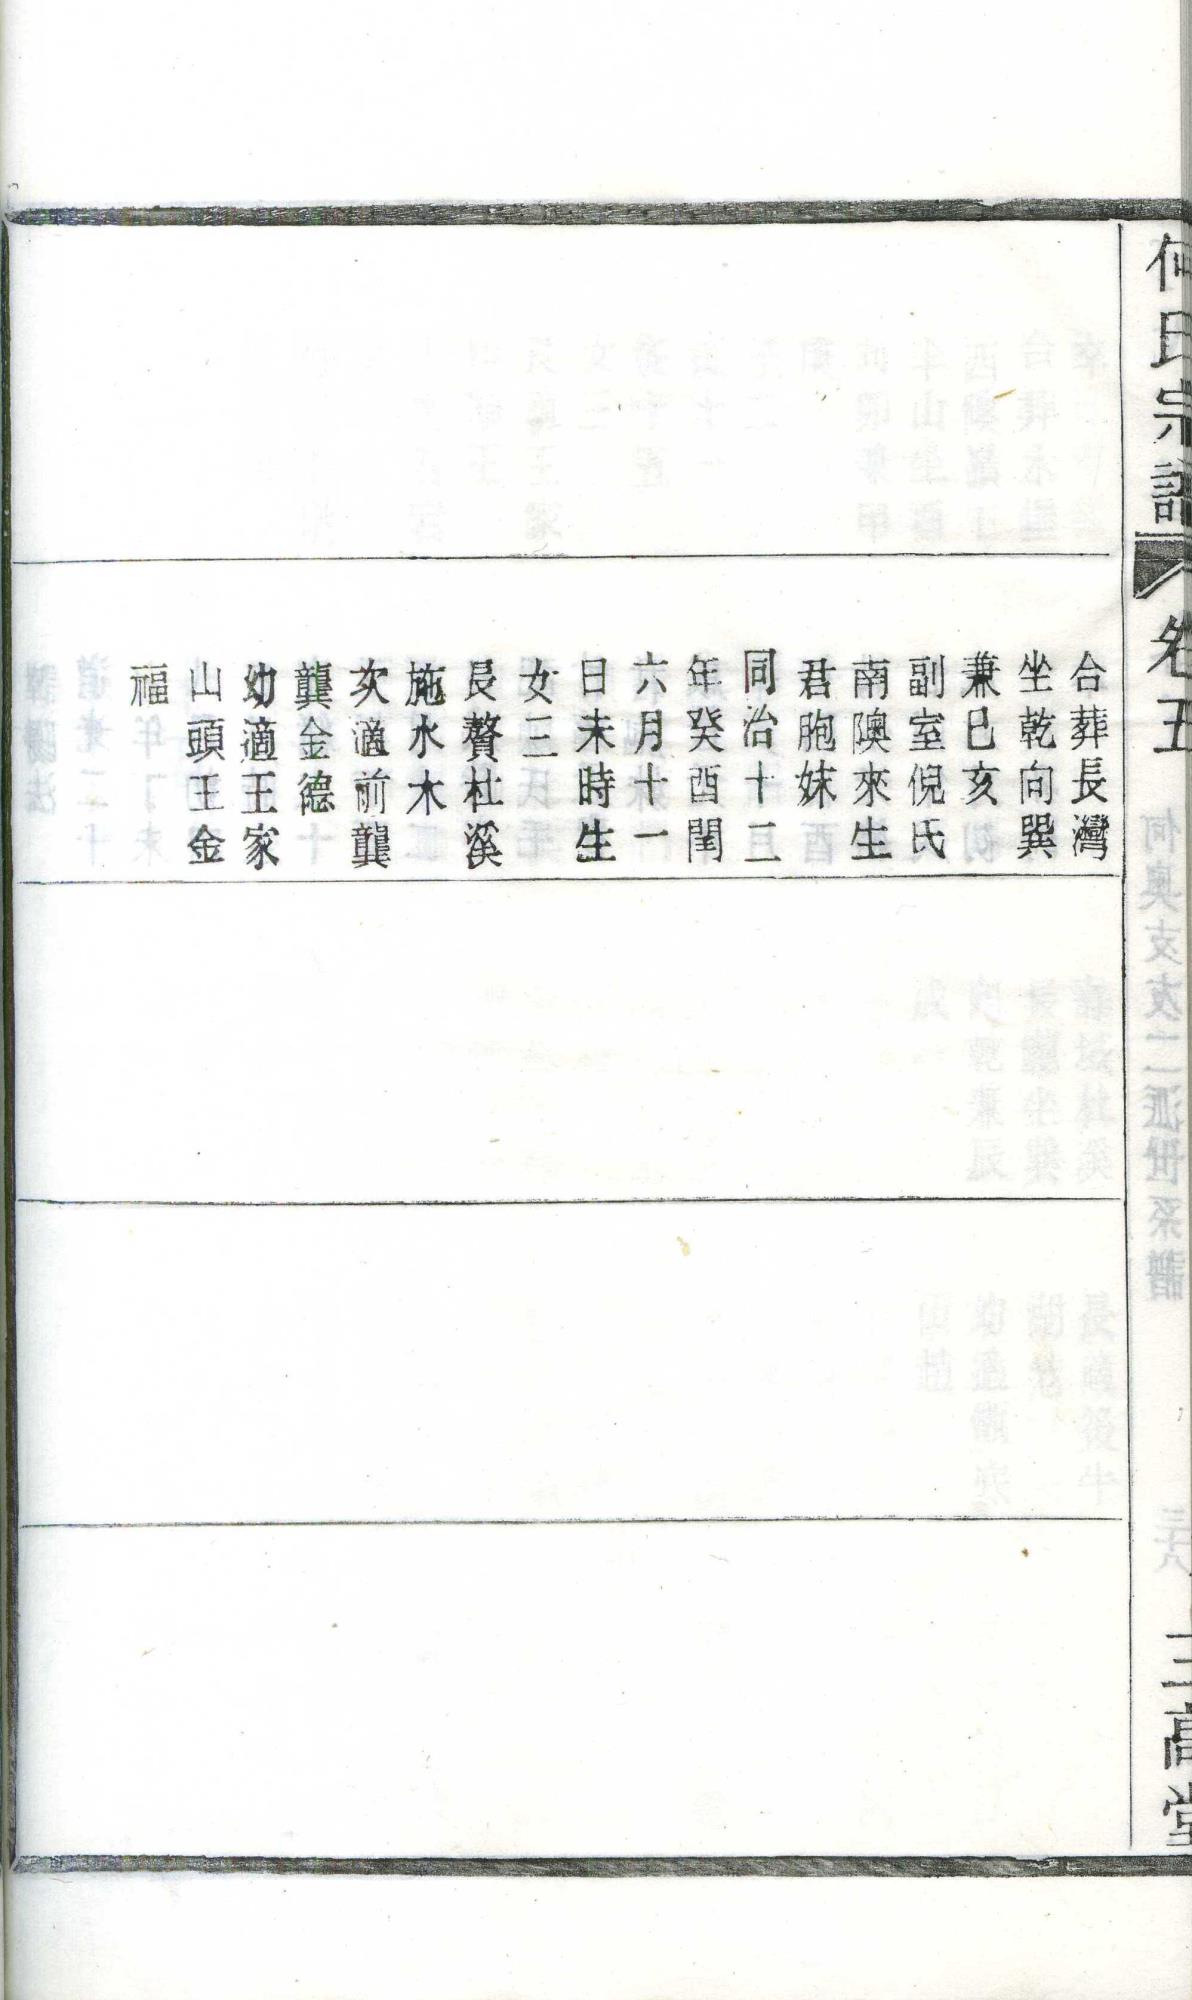 何氏宗譜
卷五
三高堂
合葬長灣
坐乾向巽
兼巳亥
副室倪氏
南隩來生
君胞妹
同治十二
年癸酉閏
六月十一
日未時生
女三
長贅杜溪
施水木
次適前龔
龔金德
幼適王家
山頭王金
福